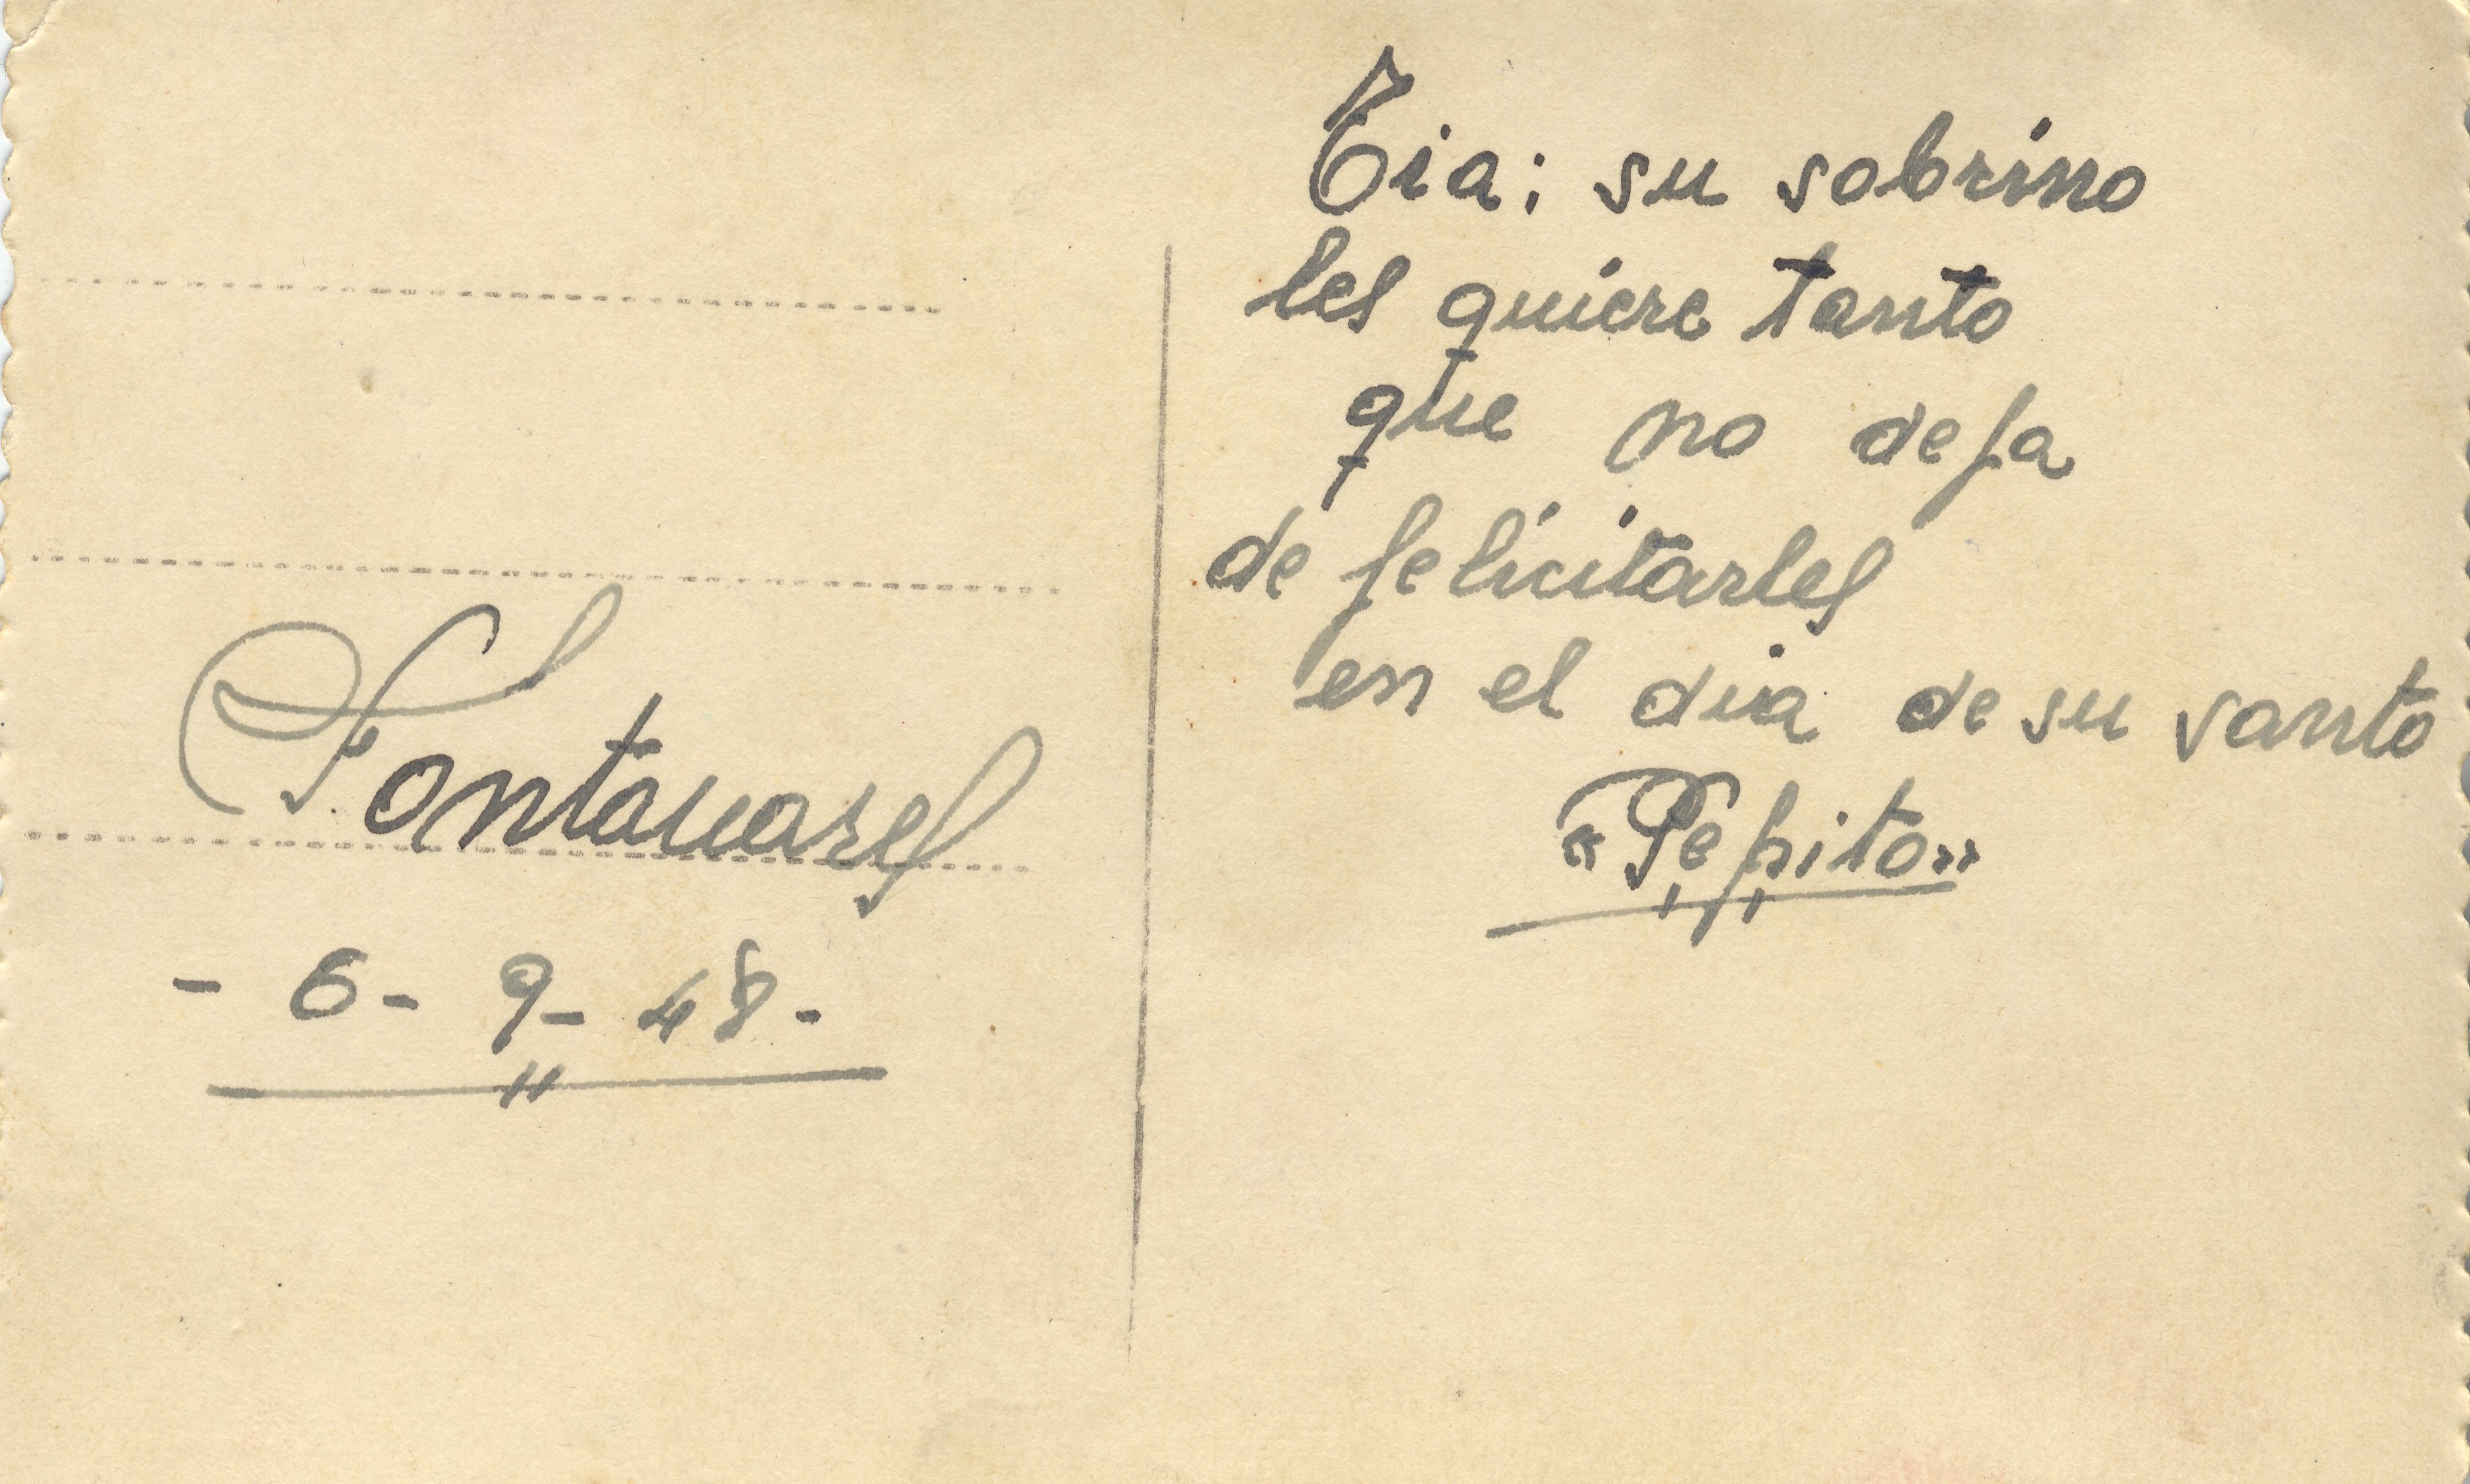 Fontanares
- 6 - 9 - 48 -
Tia: su sobrino
les quiere tanto
que no deja
de felicitarles
en el dia de su santo
«Pepito»